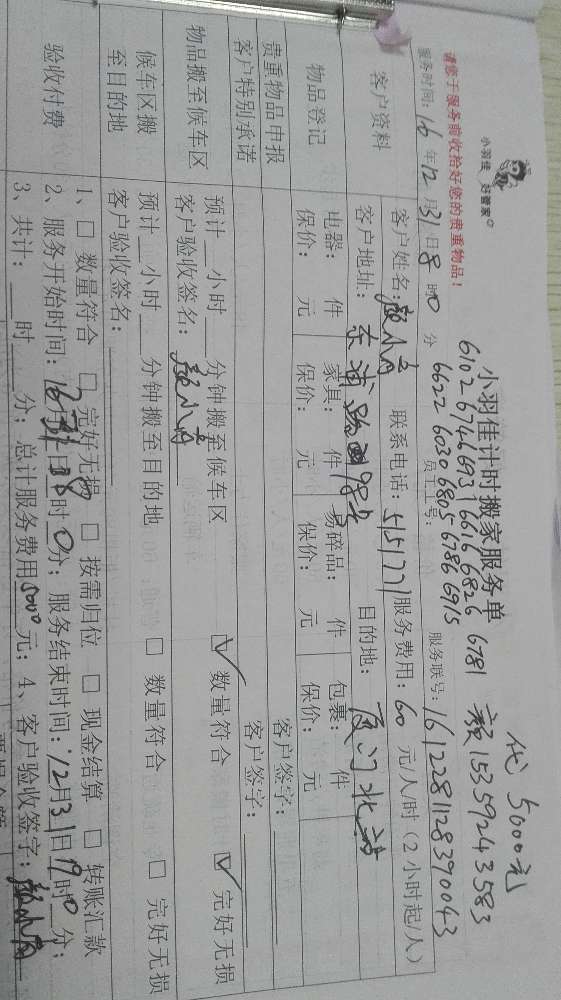 代 5000元
小羽佳 好管家
小羽佳计时搬家服务单
15359243583
请您于服务前收拾好您的贵重物品！
6102 6746 6931 6616 6826 6781
6622 6030 6805 6786 6915
服务时间：16年12月31日8时0分 员工工号： 服务联号：1612281128390043
客户资料
客户姓名： 联系电话：5151771 服务费用：60元/人/时（2小时起/人）
客户地址： 目的地：厦门北站
物品登记
电器： 件 家具： 件 易碎品： 件 包裹： 件
保价： 元 保价： 元 保价： 元 保价： 元
贵重物品申报 客户签字：
客户特别承诺 客户签字：
物品搬至候车区
预计 小时 分钟搬至候车区 ☑ 数量符合 ☑ 完好无损
客户验收签名：
候车区搬至目的地
预计 小时 分钟搬至目的地 □ 数量符合 □ 完好无损
客户验收签名：
验收付费
1、□ 数量符合 □ 完好无损 □ 按需归位 □ 现金结算 □ 转账汇款
2、服务开始时间： 时0分；服务结束时间：12月31日19时0分；
3、共计： 时 分；总计服务费用5000元；4、客户验收签字：